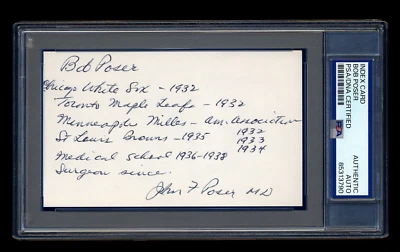 Bob Poser
Chicago White Sox - 1932
Toronto Maple Leafs - 1932
Minneapolis Millers - am. association
1932
St Louis Browns - 1935 1933
1934
Medical School 1936-1938
Surgeon since.
John F Poser MD
INDEX CARD
BOB POSER
PSA/DNA CERTIFIED
PSA
AUTHENTIC
AUTO
85313790